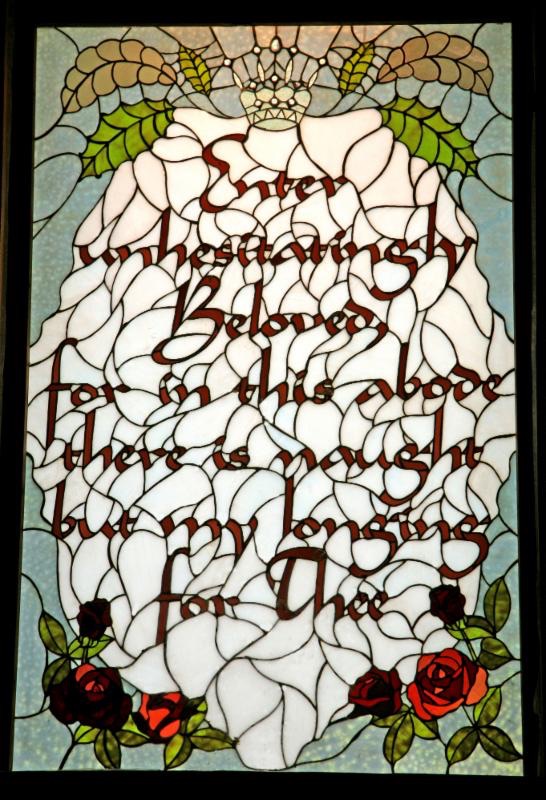 Enter
unhesitatingly
Beloved,
for in this abode
there is naught
but my longing
for Thee